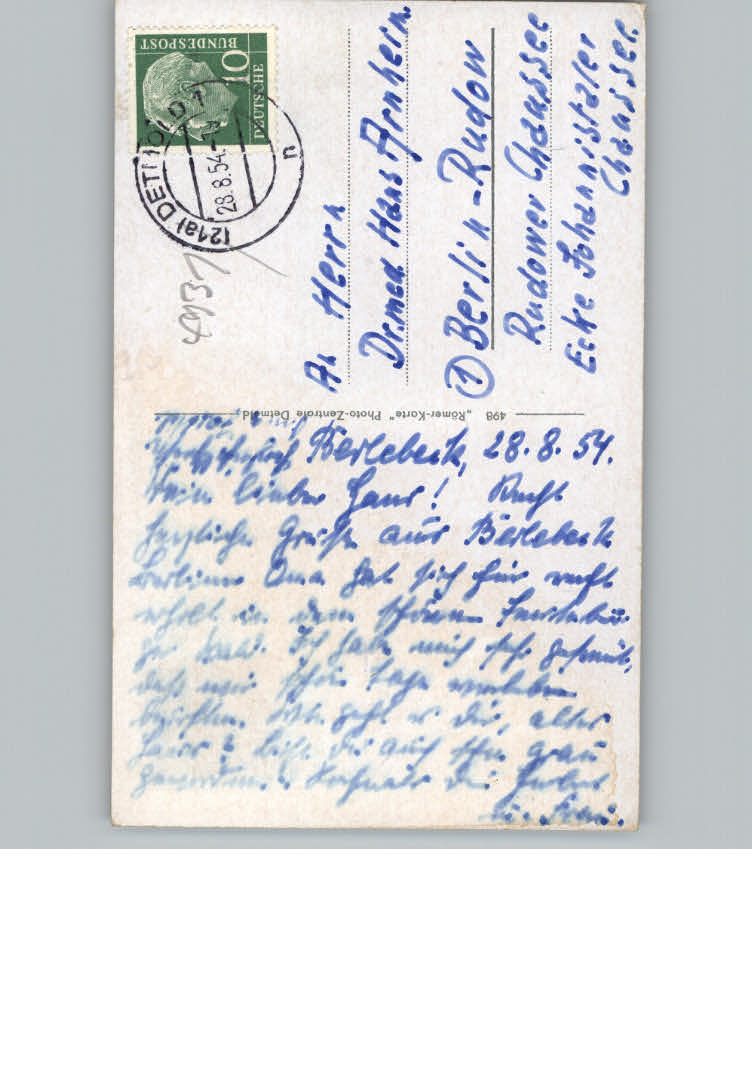 DEUTSCHE
BUNDESPOST
10
(21a) DETMOLD 1
28.8.54
n
4937
An Herrn
Dr. med. Hans Arnheim
① Berlin-Rudow
Rudower Chaussee
Ecke Johannistaler
Chaussee
498 „Römer-Karte“ Photo-Zentrale Detmold
Berlebeck, 28.8.54.
Mein lieber Hans! Recht
herzliche Grüße aus Berlebeck
Oma hat sich hier recht
erholt in dem schönen
Ich habe mich sehr gefreut,
daß wir schöne Tage verleben
geht es Dir, alter
Hans? Du auch schon grau
geworden.
u. Frau.